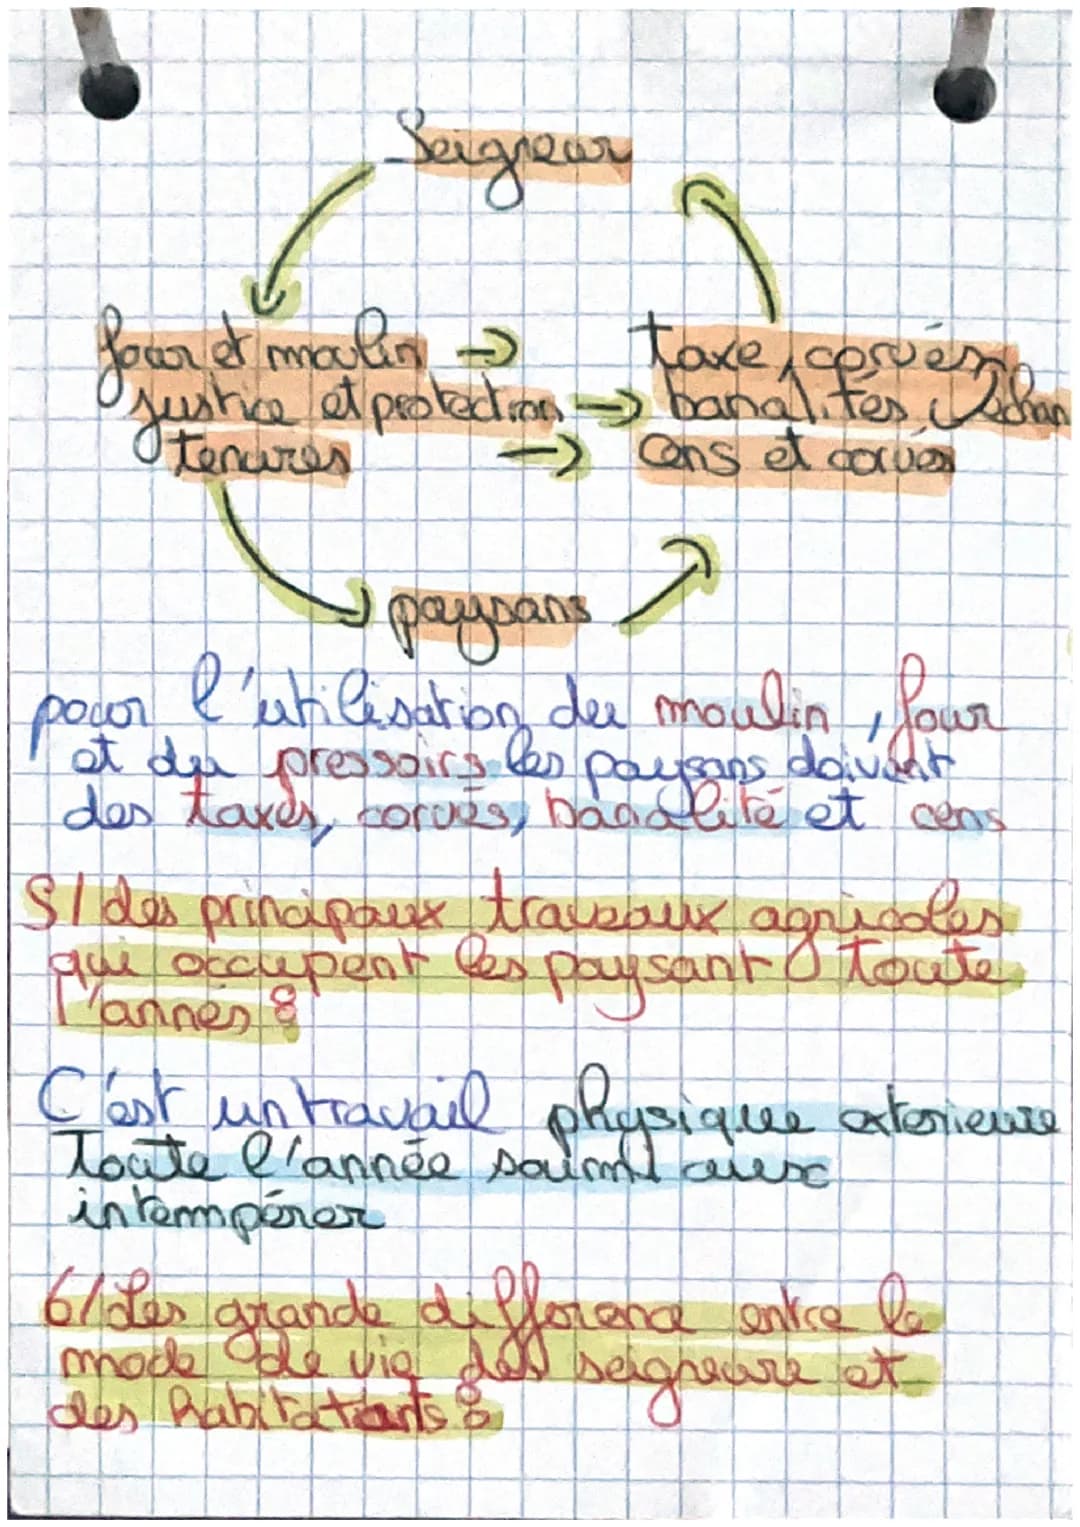 Seigneur
four et moulin → taxe, corvés,
justice et protection → banalités,
tenures → Cens et corvés
paysans
pour l'utilisation du moulin, four
et du pressoirs les paysans doivent
des taxes, corvés, banalité et cens
5/ des principaux travaux agricoles
qui occupent les paysant toute
l'annés :
C'est un travail physique exterieure
Toute l'année soumi aux
intempérer
6/ Les grande difference entre le
mode de vie des seigneure et
des habitatants :